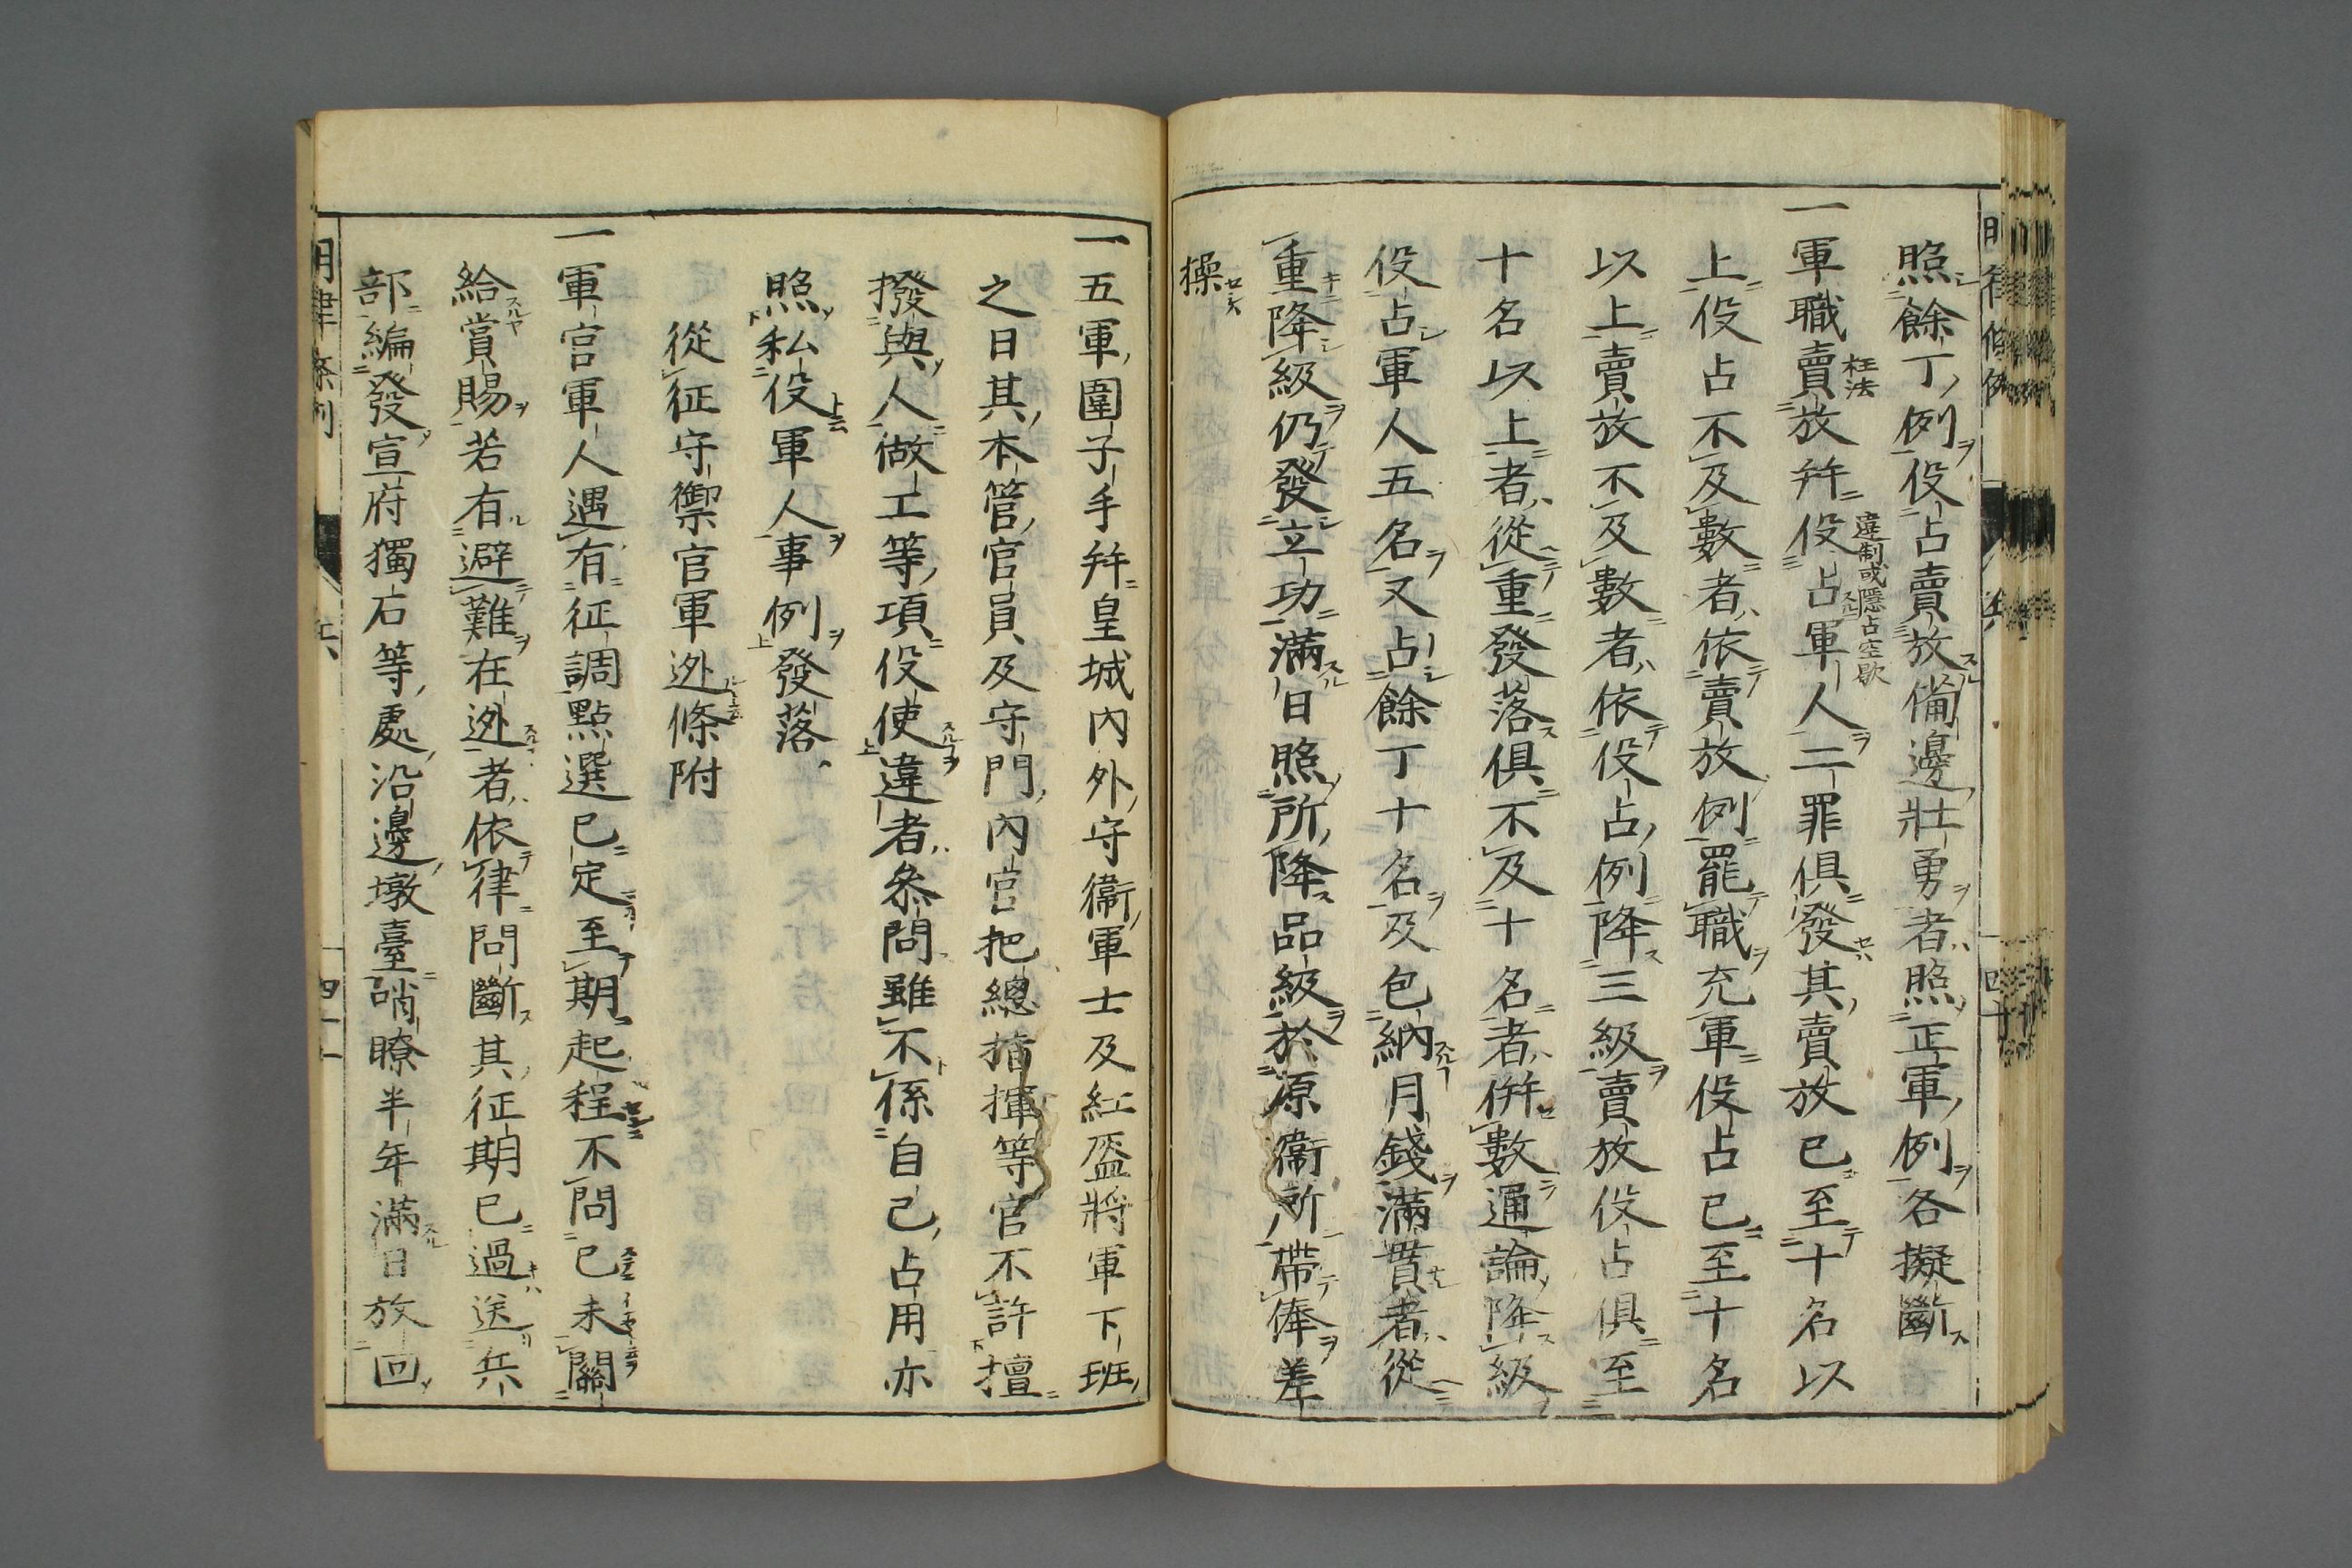 照餘丁例役占賣放備邊壯勇者照正軍例各擬斷
一軍職賣放幷役占軍人二罪俱發其賣放已至十名以
枉法
違制或隱占空歇
上役占不及數者依賣放例罷職充軍役占已至十名
以上賣放不及數者依役占例降三級賣放役占俱至
十名以上者從重發落俱不及十名者併數通論降級
役占軍人五名又占餘丁十名及包納月錢滿貫者從
重降級仍發立功滿日照所降品級於原衞所帶俸差
操
一五軍圍子手幷皇城內外守衞軍士及紅盔將軍下班
之日其本管官員及守門內官把總指揮等官不許擅
撥與人做工等項役使違者叅問雖不係自己占用亦
照私役軍人事例發落
從征守禦官軍迯條附
一軍官軍人遇有征調點選已定至期起程不問已未關
給賞賜若有避難在迯者依律問斷其征期已過送兵
部編發宣府獨石等處沿邊墩臺哨瞭半年滿日放回
明律條例
兵
四十
明律條例
兵
四十一